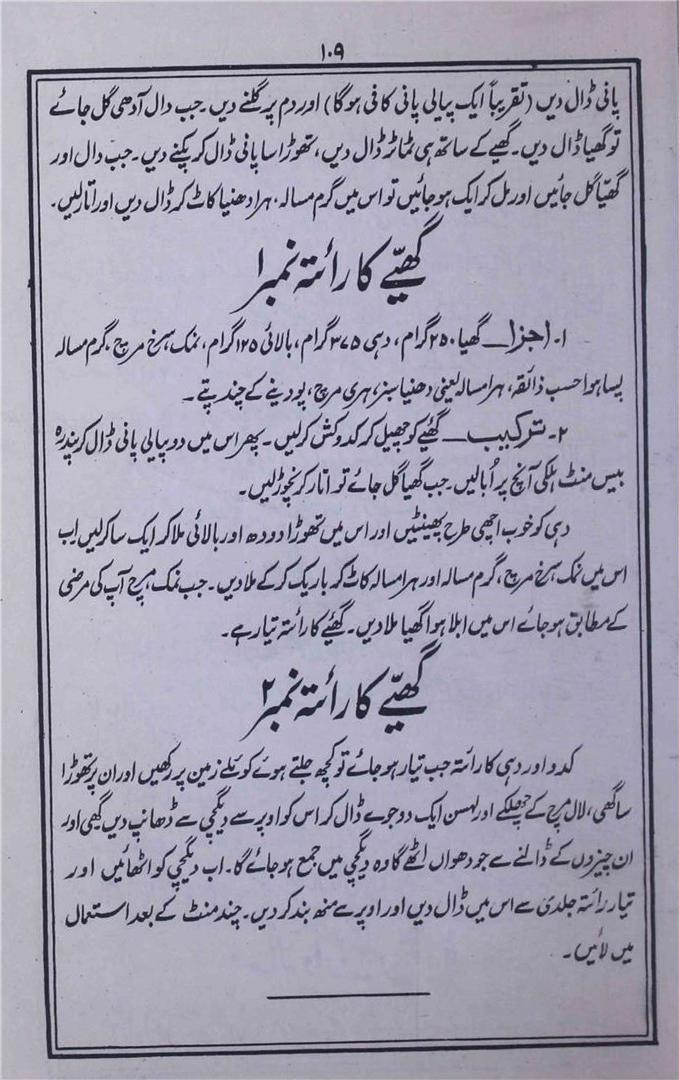 ۱۰۹
پانی ڈال دیں (تقریباً ایک پیالی پانی کافی ہوگا) اور دم پر گلنے دیں۔ جب دال آدھی گل جائے
تو گھیا ڈال دیں۔ گھیے کے ساتھ ہی ٹماٹر ڈال دیں، تھوڑا سا پانی ڈال کر پکنے دیں۔ جب دال اور
گھیّا گل جائیں اور مل کر ایک ہو جائیں تو اس میں گرم مسالہ، ہرا دھنیا کاٹ کر ڈال دیں اور اتار لیں۔
گھیّے کا رائتہ نمبر ۱
۱۔ اجزا ــ گھیا ۲۵۰ گرام، دہی ۳۷۵ گرام، بالائی ۱۲۵ گرام، نمک سرخ مرچ، گرم مسالہ
پسا ہوا حسب ذائقہ، ہرا مسالہ یعنی دھنیا سبز، ہری مرچ، پودینے کے چند پتے۔
۲۔ ترکیب ــ گھئیے کو چھیل کر کدوکش کرلیں۔ پھر اس میں دو پیالی پانی ڈال کر پندرہ
بیس منٹ ہلکی آنچ پر اُبالیں۔ جب گھیا گل جائے تو اتار کر نچوڑ لیں۔
دہی کو خوب اچھی طرح پھینٹیں اور اس میں تھوڑا دودھ اور بالائی ملا کر ایک سا کرلیں اب
اس میں نمک سرخ مرچ، گرم مسالہ اور ہرا مسالہ کاٹ کر باریک کرکے ملا دیں۔ جب نمک مرچ آپ کی مرضی
کے مطابق ہو جائے اس میں ابلا ہوا گھیا ملا دیں۔ گھئیے کا رائتہ تیار ہے۔
گھیّے کا رائتہ نمبر ۲
کدو اور دہی کا رائتہ جب تیار ہو جائے تو کچھ جلتے ہوئے کوئلے زمین پر رکھیں اور ان پر تھوڑا
سا گھی، لال مرچ کے چھلکے اور لہسن ایک دو جوے ڈال کر اس کو اوپر سے دیگچی سے ڈھانپ دیں گھی اور
ان چیزوں کے ڈالنے سے جو دھواں اٹھے گا وہ دیگچی میں جمع ہو جائے گا۔ اب دیگچی کو اٹھائیں اور
تیار رائتہ جلدی سے اس میں ڈال دیں اور اوپر سے منھ بند کر دیں۔ چند منٹ کے بعد استعمال
میں لائیں۔